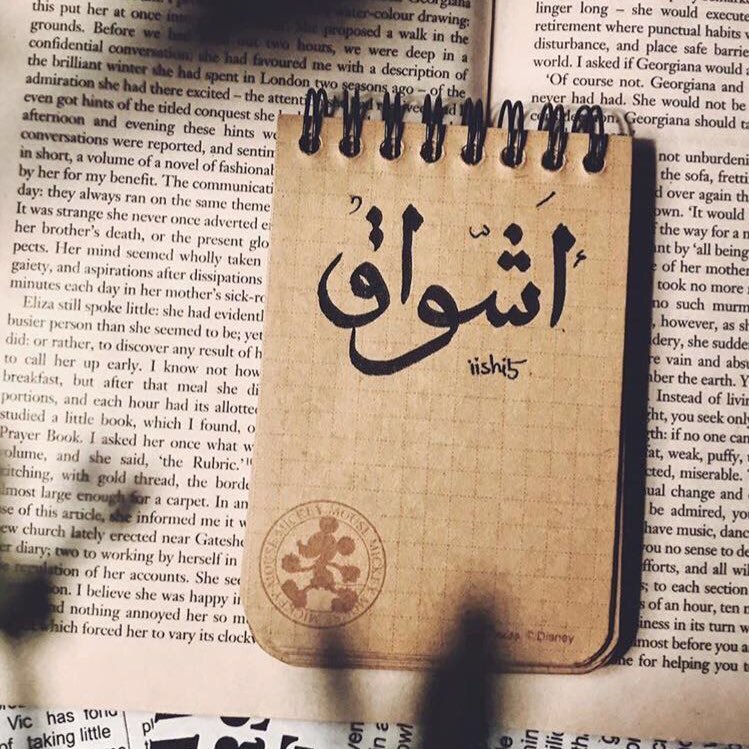 this put her at once Georgiana
water-colour drawing:
grounds. Before we she proposed a walk in the
out two hours, we were deep in a
confidential conversation: she had favoured me with a description of
the brilliant winter she had spent in London two seasons ago – of the
admiration she had there excited – the
even got hints of the titled conquest she
afternoon and evening these hints
conversations were reported, and
in short, a volume of a novel of fashional
by her for my benefit. The communicati
day: they always ran on the same theme
It was strange she never once adverted
her brother's death, or the present glo
pects. Her mind seemed wholly taken
gaiety, and aspirations after dissipations
minutes each day in her mother's sick-ro
Eliza still spoke little: she had evidentl
busier person than she seemed to be; yet
did: or rather, to discover any result of h
to call her up early. I know not how
breakfast, but after that meal she di
portions, and each hour had its allotte
studied a little book, which I found, o
Prayer Book. I asked her once what w
olume, and she said, 'the Rubric.'
titching, with gold thread, the borde
lmost large enough for a carpet. In an
se of this article, she informed me it w
ew church lately erected near Gateshe
er diary; two to working by herself in
regulation of her accounts. She see
on. I believe she was happy i
nd nothing annoyed her so m
which forced her to vary its clock
أَشْوَاق
iishi5
MICKEY MOUSE MICKEY MOUSE MICKEY MOUSE
© Disney
linger long – she would execute
retirement where punctual habits
disturbance, and place safe barrie
world. I asked if Georgiana would
'Of course not. Georgiana and
never had had. She would not be
Georgiana should ta
not unburdeni
the sofa, fretti
d over again th
own. 'It would
the way for a m
nt by 'all being
of her mothe
took no more
no such murm
, however, as sh
dery, she sudde
re vain and absu
ber the earth. Y
Instead of livin
ht, you seek only
th: if no one can
fat, weak, puffy,
cted, miserable.
ual change and
be admired, you
have music, danc
you no sense to de
fforts, and all wil
; to each section
of an hour, ten m
iness in its turn w
most before you a
ne for helping you t
Vic has
of taking little